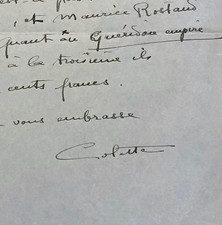 , et Maurice Rostand
quant au Guéridon empire
à la troisième ils
cents francs.
vous embrasse
Colette